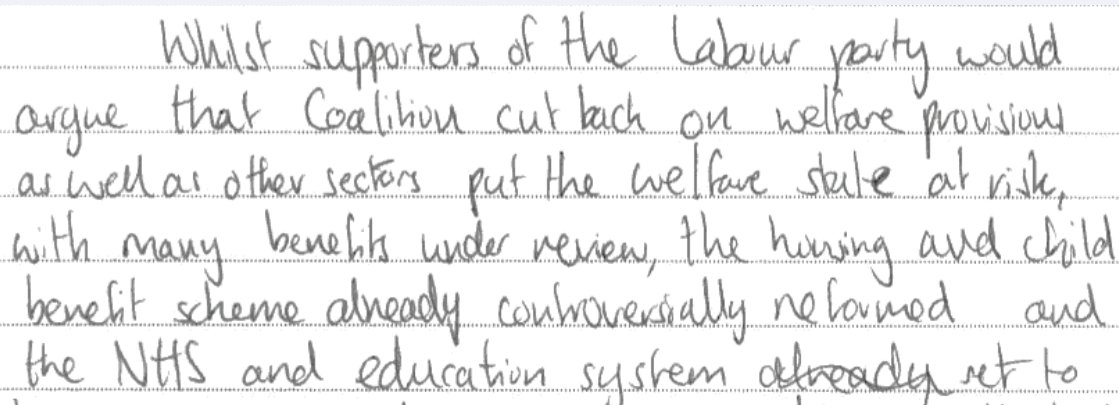 Whilst supporters of the Labour party would
argue that Coalition cut back on welfare provisions
as well as other sectors put the welfare state at risk,
with many benefits under review, the housing and child
benefit scheme already controversially reformed and
the NHS and education system already set to